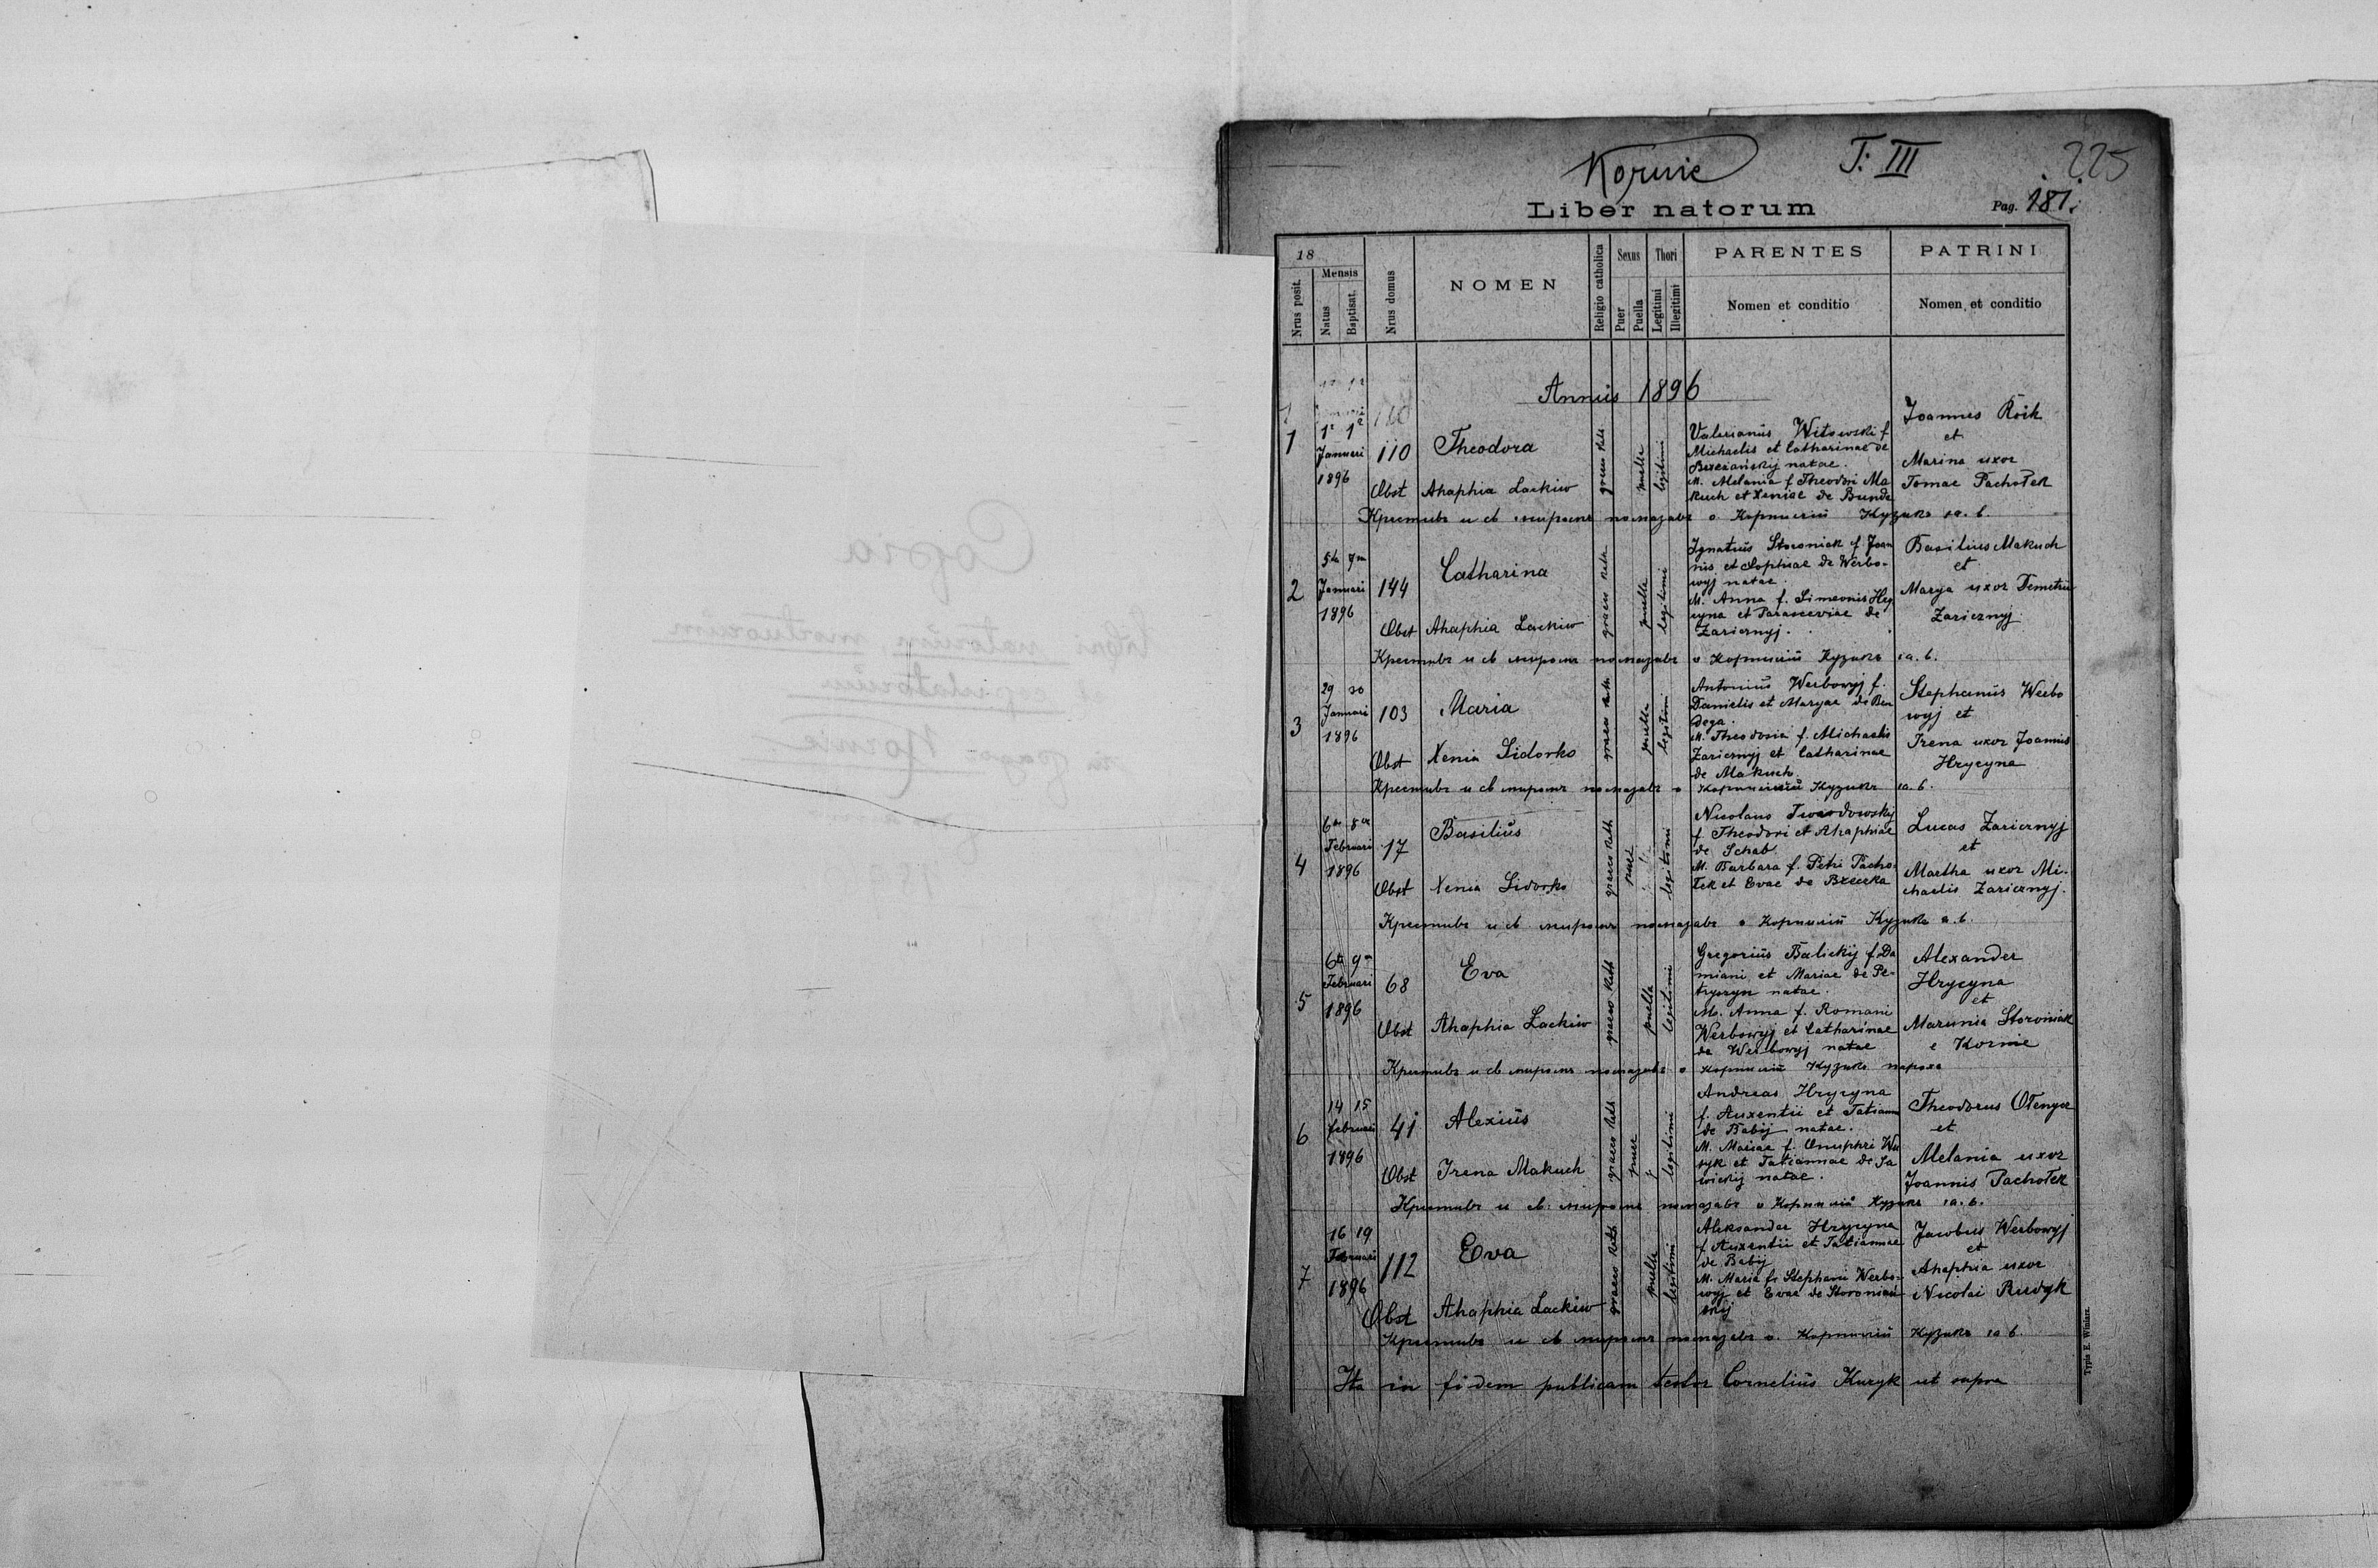 Kornie T. III 225
Liber natorum Pag. 181.
18
Mensis
Nrus posit.
Natus
Baptisat.
Nrus domus
NOMEN
Religio catholica
Sexus
Puer
Puella
Thori
Legitimi
Illegitimi
PARENTES
Nomen et conditio
PATRINI
Nomen et conditio
Annus 1896
1
1a 1a
Januari
1896
110
Theodora
Obst Ahaphia Lackiw
graeco kath
puella
legitimi
Valerianus Witowski f.
Michaelis et Catharinae de
Brzezańskij natae.
M. Melania f. Theodori Ma
kuch et Xeniae de Bunda
Joannes Roik
et
Marina uxor
Tomae Pachołek
Крестивъ и св. миромъ помазавъ о. Корнилій Кузикъ
2
5ta 7ma
Januari
1896
144
Catharina
Obst Ahaphia Lackiw
graeco kath
puella
legitimi
Ignatius Storoniak f. Joan
nis et Sophiae de Werbo-
wyj natae.
M. Anna f. Simeonis Hry
cyna et Parasceviae de
Zaricznyj.
Basilius Makuch
et
Marya uxor Demetrii
Zaricznyj
Крестивъ и св миромъ помазавъ о Корнилій Кузикъ
3
29 30
Januari
1896
103
Maria
Obst Xenia Sidorko
graeco kath
puella
legitimi
Antonius Werbowyj f.
Danielis et Maryae de Ben
dega.
M. Theodosia f. Michaelis
Zaricznyj et Catharinae
de Makuch
Stephanus Werbo
wyj et
Irena uxor Joannis
Hrycyna
Крестивъ и св миромъ помазавъ о Корнилій Кузикъ
4
6ta 8va
Februari
1896
17
Basilius
Obst Xenia Sidorko
graeco kath
puer
legitimi
Nicolaus Twardowskij
f. Theodori et Ahaphiae
de Schab
M. Barbara f. Petri Pacho-
łek et Evae de
Lucas Zaricznyj
et
Martha uxor Mi-
chaelis Zaricznyj.
Крестивъ и св миромъ помазавъ о Корнилій Кузикъ
5
6ta 9na
Februari
1896
68
Eva
Obst Ahaphia Lackiw
graeco kath
puella
legitimi
Gregorius Balickij f. Da
miani et Mariae de Pe-
tryszyn natae.
M. Anna f. Romani
Werbowyj et Catharinae
de Werbowyj natae
Alexander
Hrycyna
et
Marunia Storoniak
e Kornie
Крестивъ и св миромъ помазавъ о Корнилій Кузикъ парохъ
6
14 15
februari
1896
41
Alexius
Obst Irena Makuch
graeco kath
puer
legitimi
Andreas Hrycyna
f. Auxentii et Tatianna
de Babij natae.
M. Mariae f. Onuphri Wa
syk et Tatiannae de Sa
wickij natae.
Theodorus
et
Melania uxor
Joannis Pachołek
Крестивъ и св. миромъ помазавъ о Корнилій Кузикъ
7
16 19
Februari
1896
112
Eva
Obst Ahaphia Lackiw
graeco kath
puella
legitimi
Aleksander Hrycyna
f. Auxentii et Tatiannae
de Babij
M. Maria f. Stephani Werbo-
wyj et Evae de
Jacobus Werbowyj
et
Ahaphia uxor
Nicolai Rudyk
Крестивъ и св миромъ помазавъ о. Корнилій Кузикъ
Ita in fidem publicam testor Cornelius Kuzyk ut supra
Typis E. Winiarz.